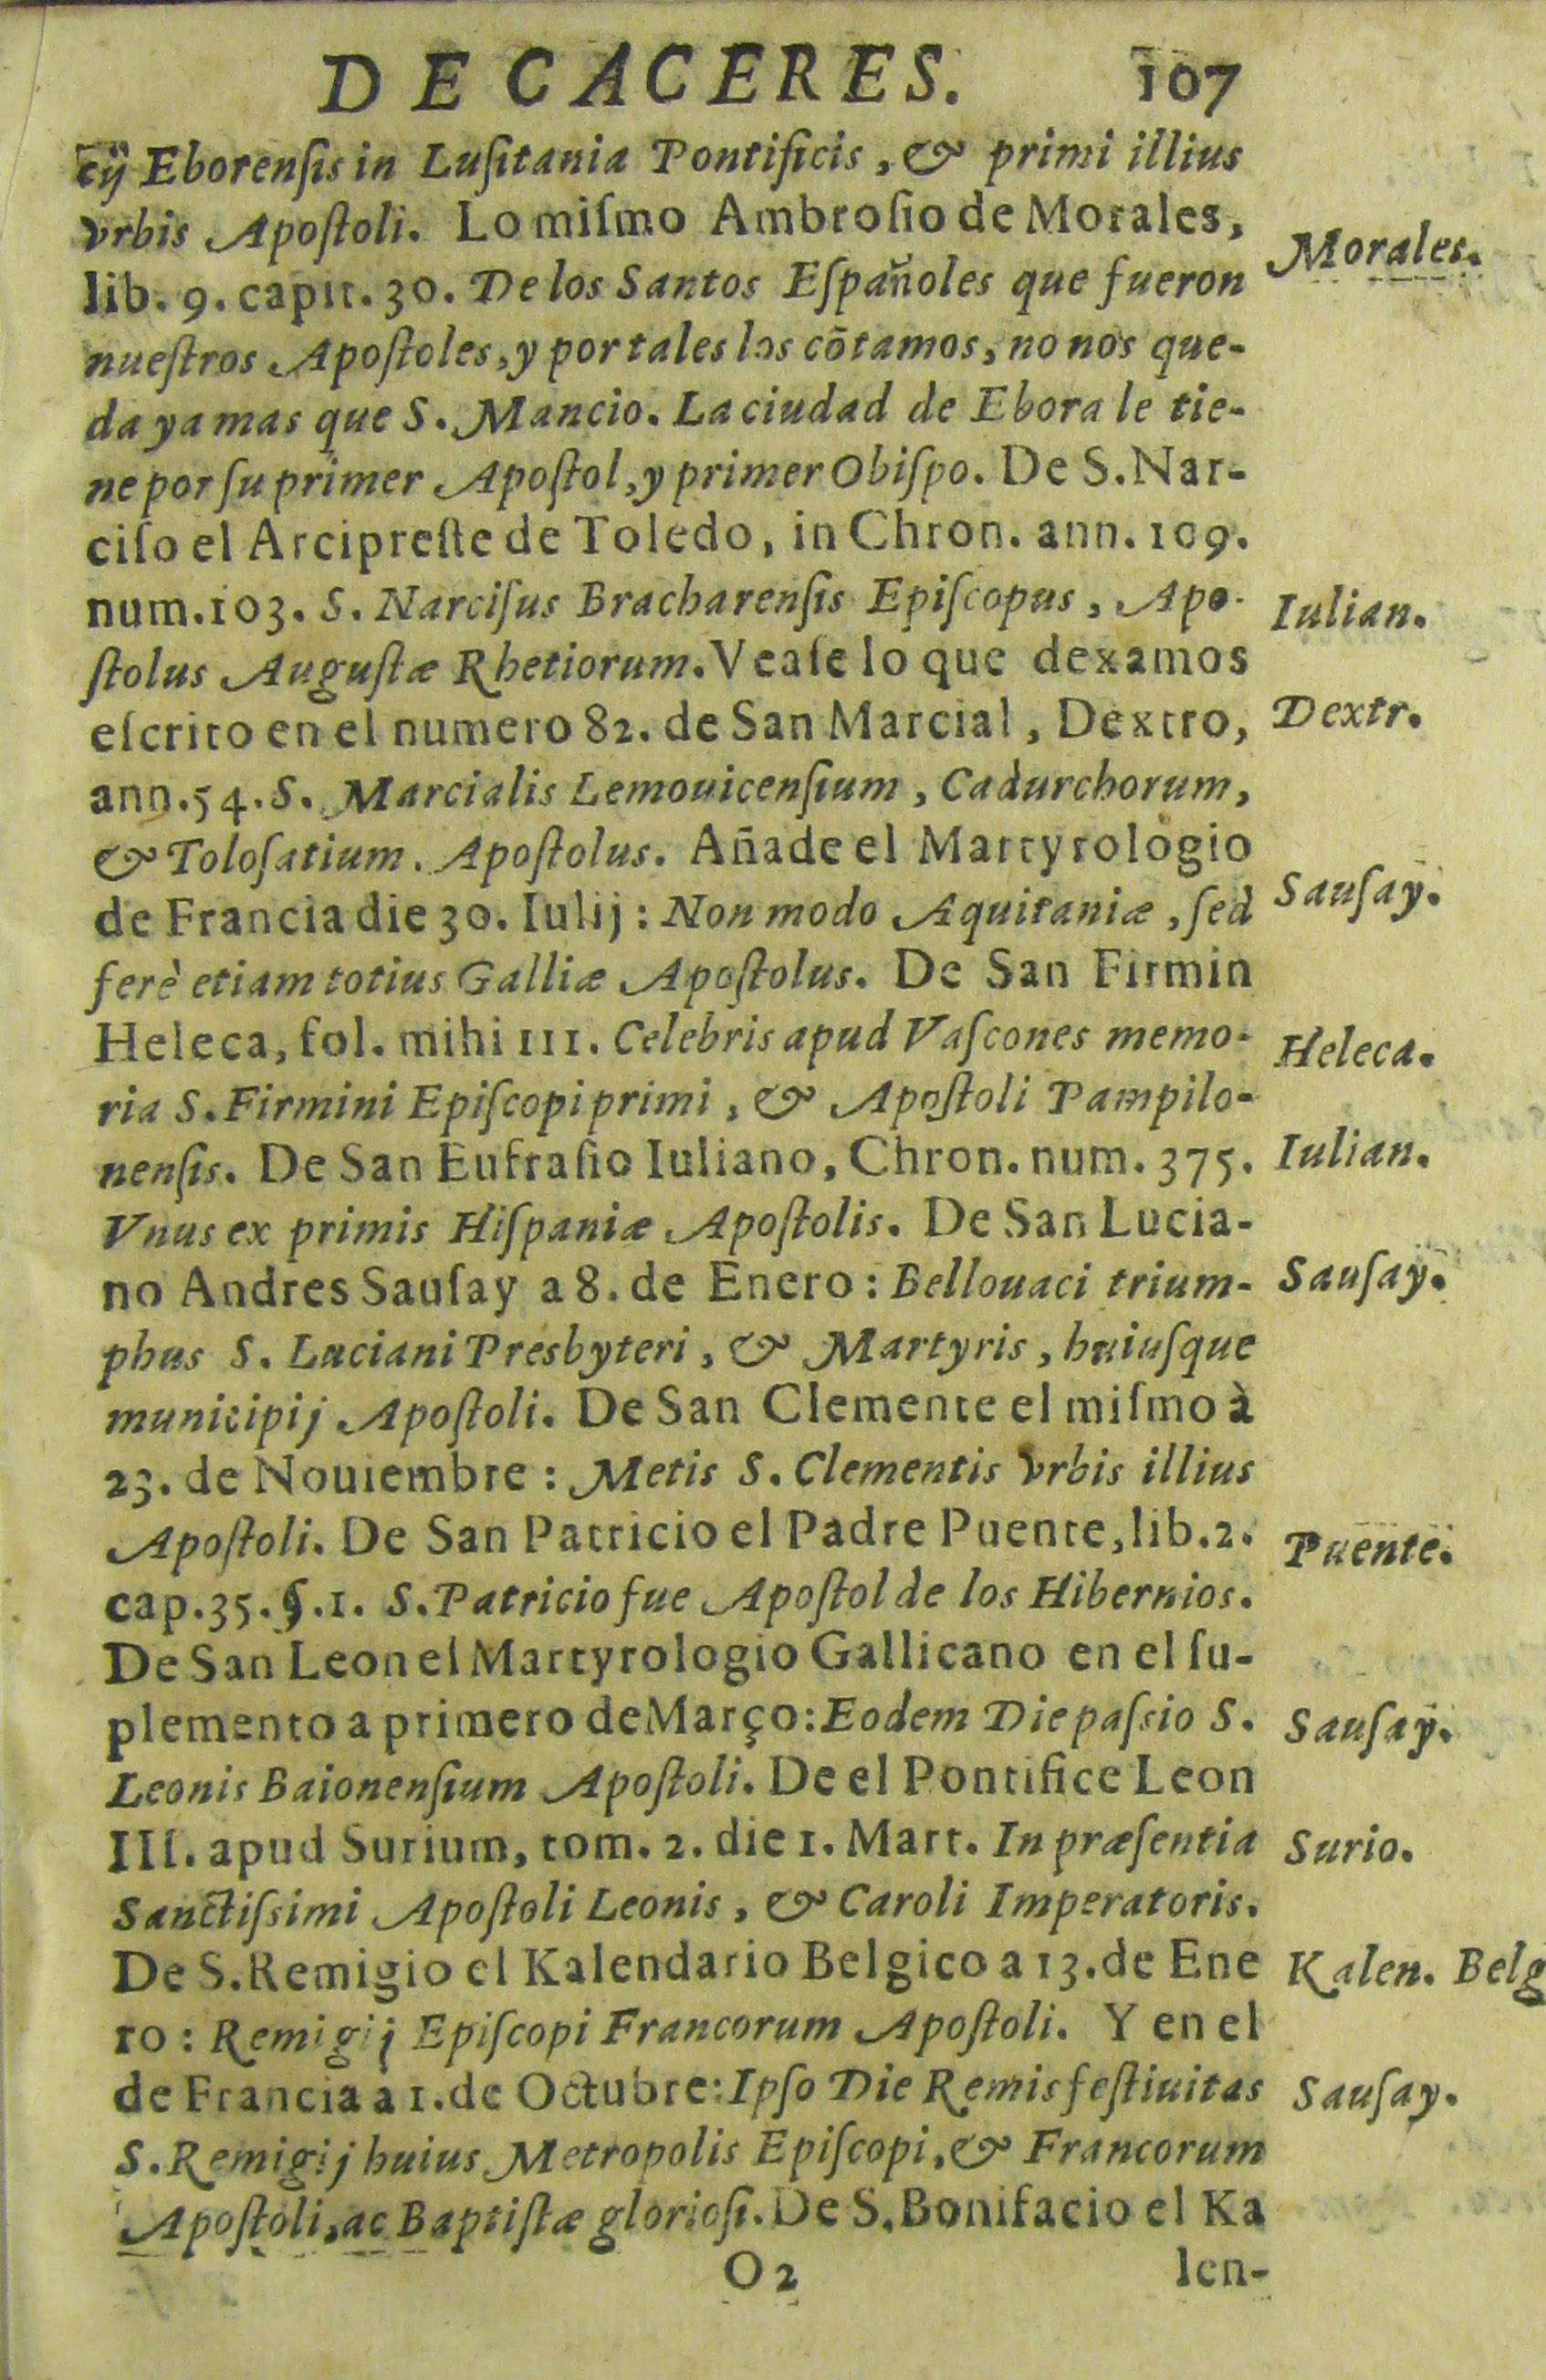 DE CACERES. 107
cij Eborenſis in Luſitania Pontificis, & primi illius
vrbis Apoſtoli. Lo miſmo Ambroſio de Morales,
Morales.
lib. 9. capit. 30. De los Santos Eſpañoles que fueron
nueſtros Apoſtoles, y por tales los cōtamos, no nos que-
da ya mas que S. Mancio. La ciudad de Ebora le tie-
ne por ſu primer Apoſtol, y primer Obiſpo. De S. Nar-
ciſo el Arcipreſte de Toledo, in Chron. ann. 109.
num. 103. S. Narciſus Bracharenſis Epiſcopus, Apo-
Iulian.
ſtolus Auguſtæ Rhetiorum. Veaſe lo que dexamos
eſcrito en el numero 82. de San Marcial, Dextro,
Dextr.
ann. 54. S. Marcialis Lemouicenſium, Cadurchorum,
& Toloſatium. Apoſtolus. Añade el Martyrologio
de Francia die 30. Iulij: Non modo Aquitaniæ, ſed
Sauſay.
ferè etiam totius Galliæ Apoſtolus. De San Firmin
Heleca, fol. mihi 111. Celebris apud Vaſcones memo-
Heleca.
ria S. Firmini Epiſcopi primi, & Apoſtoli Pampilo-
nenſis. De San Eufraſio Iuliano, Chron. num. 375.
Iulian.
Vnus ex primis Hiſpaniæ Apoſtolis. De San Lucia-
no Andres Sauſay a 8. de Enero: Bellouaci trium-
Sauſay.
phus S. Luciani Presbyteri, & Martyris, huiuſque
municipij Apoſtoli. De San Clemente el miſmo à
23. de Nouiembre: Metis S. Clementis vrbis illius
Apoſtoli. De San Patricio el Padre Puente, lib. 2.
Puente.
cap. 35. §. 1. S. Patricio fue Apoſtol de los Hibernios.
De San Leon el Martyrologio Gallicano en el ſu-
plemento a primero de Março: Eodem Die paſsio S.
Sauſay.
Leonis Baionenſium Apoſtoli. De el Pontifice Leon
III. apud Surium, tom. 2. die 1. Mart. In præſentia
Surio.
Sanctiſsimi Apoſtoli Leonis, & Caroli Imperatoris.
De S. Remigio el Kalendario Belgico a 13. de Ene
Kalen. Belg
ro: Remigij Epiſcopi Francorum Apoſtoli. Y en el
de Francia a 1. de Octubre: Ipſo Die Remis feſtiuitas
Sauſay.
S. Remigij huius Metropolis Epiſcopi, & Francorum
Apoſtoli, ac Baptiſtæ glorioſi. De S. Bonifacio el Ka
O2 len-